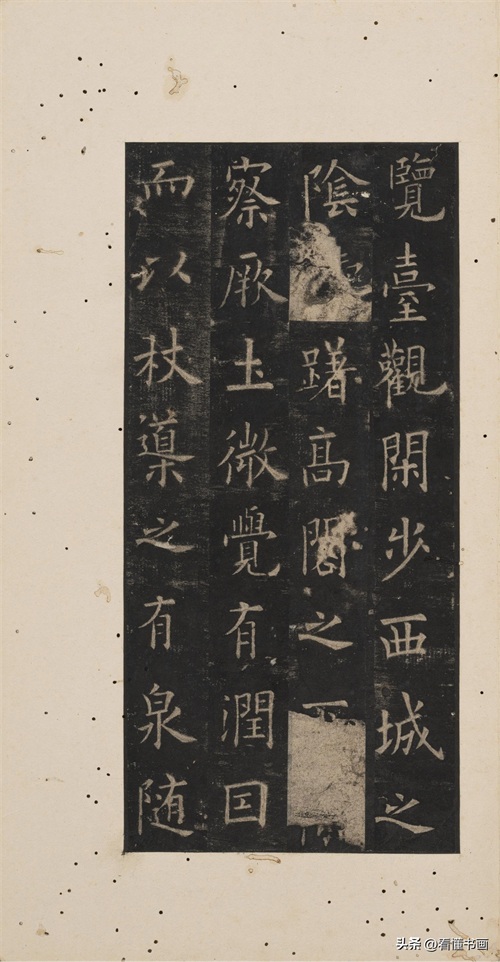 覽臺觀閑步西城之
陰躇高閣之
察厥土微覺有潤因
而以杖導之有泉随
头条 @看懂书画